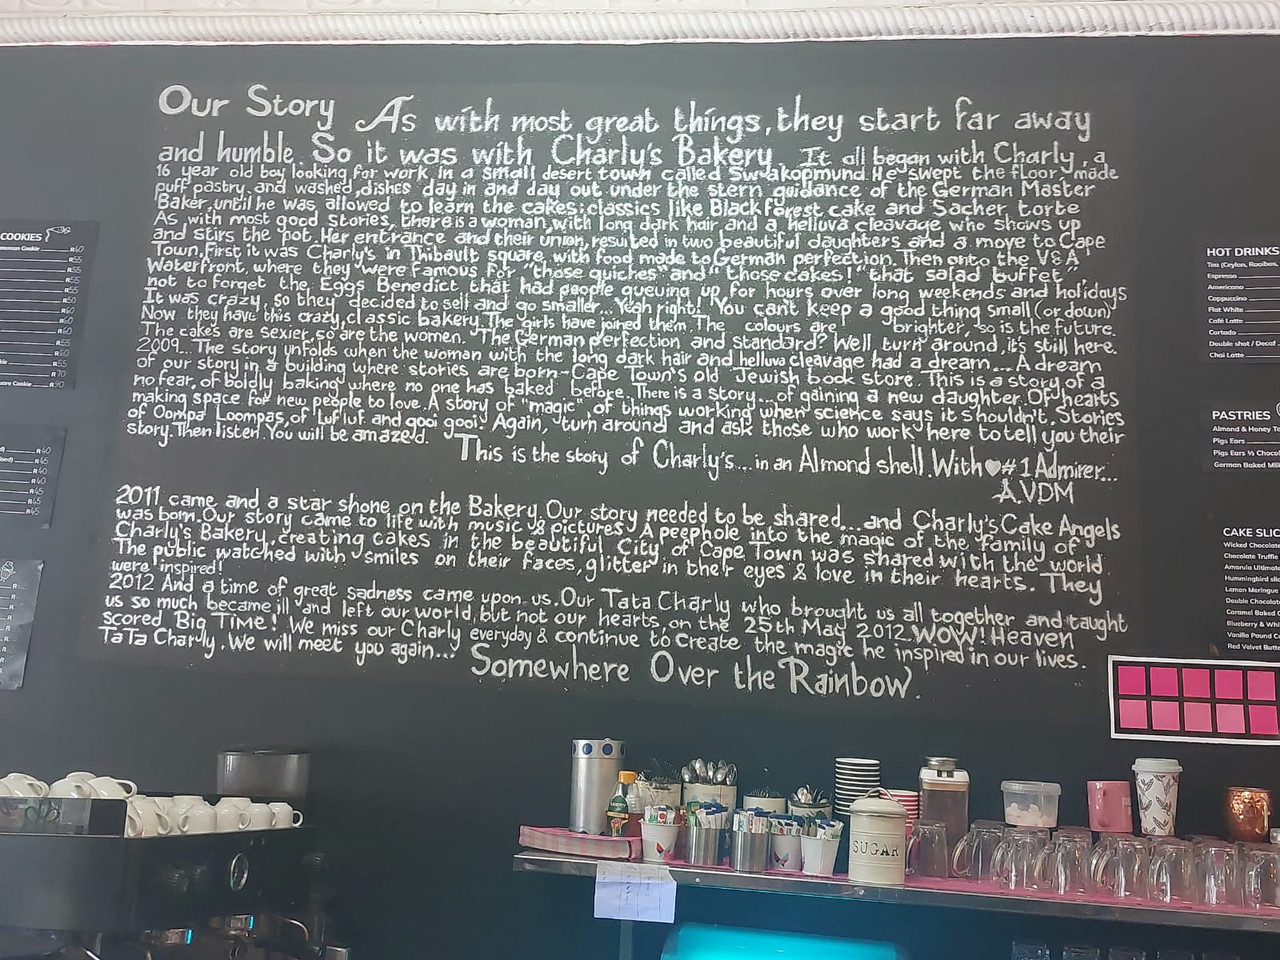 Our Story As with most great things, they start far away
and humble. So it was with Charly's Bakery. It all began with Charly, a
16 year old boy looking for work in a small desert town called Swakopmund. He swept the floor, made
puff pastry, and washed dishes day in and day out under the stern guidance of the German Master
Baker, until he was allowed to learn the cakes: classics like Blackforest cake and Sacher torte
As with most good stories, there is a woman, with long dark hair, and a helluva cleavage who shows up
and stirs the pot. Her entrance and their union, resulted in two beautiful daughters and a move to Cape
Town, First it was Charly's in Thibault square, with food made to German perfection. Then onto the V&A
Waterfront, where they were famous for "those quiches" and "those cakes!" "that salad buffet"
not to forget the Eggs Benedict, that had people queuing up for hours over long weekends and holidays
It was crazy, so they decided to sell and go smaller... Yeah right! You can't keep a good thing small (or down)
Now they have this crazy, classic bakery. The girls have joined them. The colours are brighter, so is the future.
The cakes are sexier, so are the women. The German perfection and standard? Well, turn around, it's still here.
2009... The story unfolds when the woman with the long dark hair and helluva cleavage had a dream... A dream
of our story in a building where stories are born - Cape Town's old Jewish book store. This is a story of a
no fear, of boldly baking where no one has baked before. There is a story... of gaining a new daughter. Of hearts
making space for new people to love. A story of "magic", of things working when science says it shouldn't. Stories
of Oompa Loompas, of luf luf and gooi gooi. Again, turn around and ask those who work here to tell you their
story. Then listen. You will be amazed.
This is the story of Charly's... in an Almond shell. With ♥ #1 Admirer...
A.VDM
2011 came and a star shone on the Bakery. Our story needed to be shared... and Charly's Cake Angels
was born. Our story came to life with music & pictures. A peephole into the magic of the family of
Charly's Bakery, creating cakes in the beautiful City of Cape Town was shared with the world.
The public watched with smiles on their faces, glitter in their eyes & love in their hearts. They
were inspired!
2012 And a time of great sadness came upon us. Our Tata Charly who brought us all together and taught
us so much became ill and left our world, but not our hearts, on the 25th May 2012. WOW! Heaven
scored Big TIME! We miss our Charly everyday & continue to create the magic he inspired in our lives.
TaTa Charly. We will meet you again... Somewhere Over the Rainbow.
COOKIES
R60
R55
R55
HOT DRINKS
Tea (Ceylon, Rooibos,
Espresso
Americano
Cappuccino
Flat White
Café Latte
Cortado
Double shot / Decaf
Chai Latte
PASTRIES
Almond & Honey
Pigs Ears
Pigs Ears ½ Chocol
German Baked Mil
CAKE SLIC
Wicked Chocolate
Chocolate Truffle
Amarula Ultimate
Hummingbird slic
Lemon Meringue
Double Chocolate
Caramel Baked
Blueberry & Whi
Vanilla Pound Ca
Red Velvet Butte
SUGAR